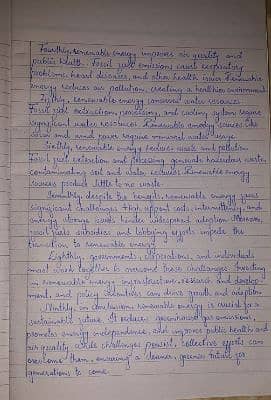 Fourthly, renewable energy improves air quality and
public health. Fossil fuel emissions cause respiratory
problems, heart diseases, and other health issues. Renewable
energy reduces air pollution, creating a healthier environment.
Fifthly, renewable energy conserves water resources.
Fossil fuel extraction, processing, and cooling systems require
significant water resources. Renewable energy sources like
solar and wind power require minimal water usage.
Sixthly, renewable energy reduces waste and pollution.
Fossil fuel extraction and processing generate hazardous waste,
contaminating soil and water resources. Renewable energy
sources produce little to no waste.
Seventhly, despite the benefits, renewable energy faces
significant challenges. High upfront costs, intermittency, and
energy storage issues hinder widespread adoption. Moreover,
fossil fuels subsidies and lobbying efforts impede the
transition to renewable energy.
Eighthly, governments, corporations, and individuals
must work together to overcome these challenges. Investing
in renewable energy infrastructure, research and develop-
ment, and policy incentives can drive growth and adoption.
Ninthly, in conclusion, renewable energy is crucial for a
sustainable future. It reduces greenhouse gas emissions,
promotes energy independence, and improves public health and
air quality. While challenges persist, collective efforts can
overcome them, ensuring a cleaner, greener future for
generations to come.